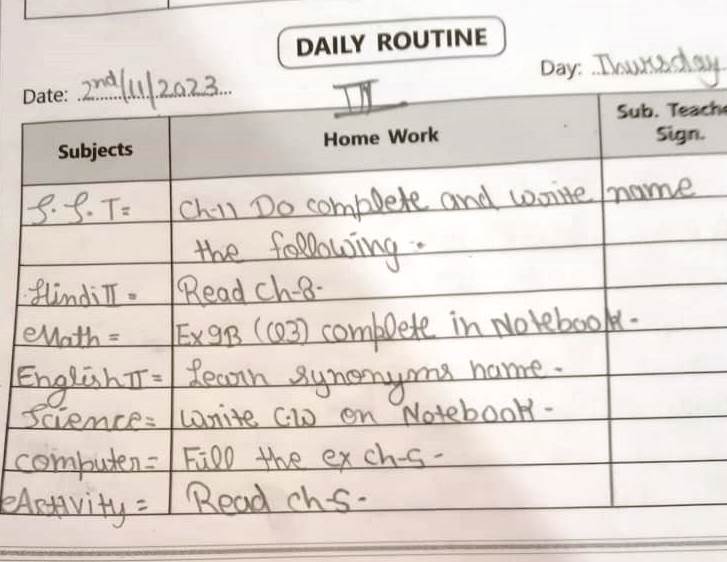 DAILY ROUTINE
Date: 2nd/11/2023 Day: Thursday
III
Subjects Home Work Sub. Teache Sign.
S.S.T= Ch-11 Do complete and write name
the following.
Hindi II = Read Ch-8-
Math = Ex 9B (Q3) complete in Notebook-
English II = Learn synonyms name-
Science= Write C.W on Notebook-
computer= Fill the ex ch-5-
Activity= Read ch-5-